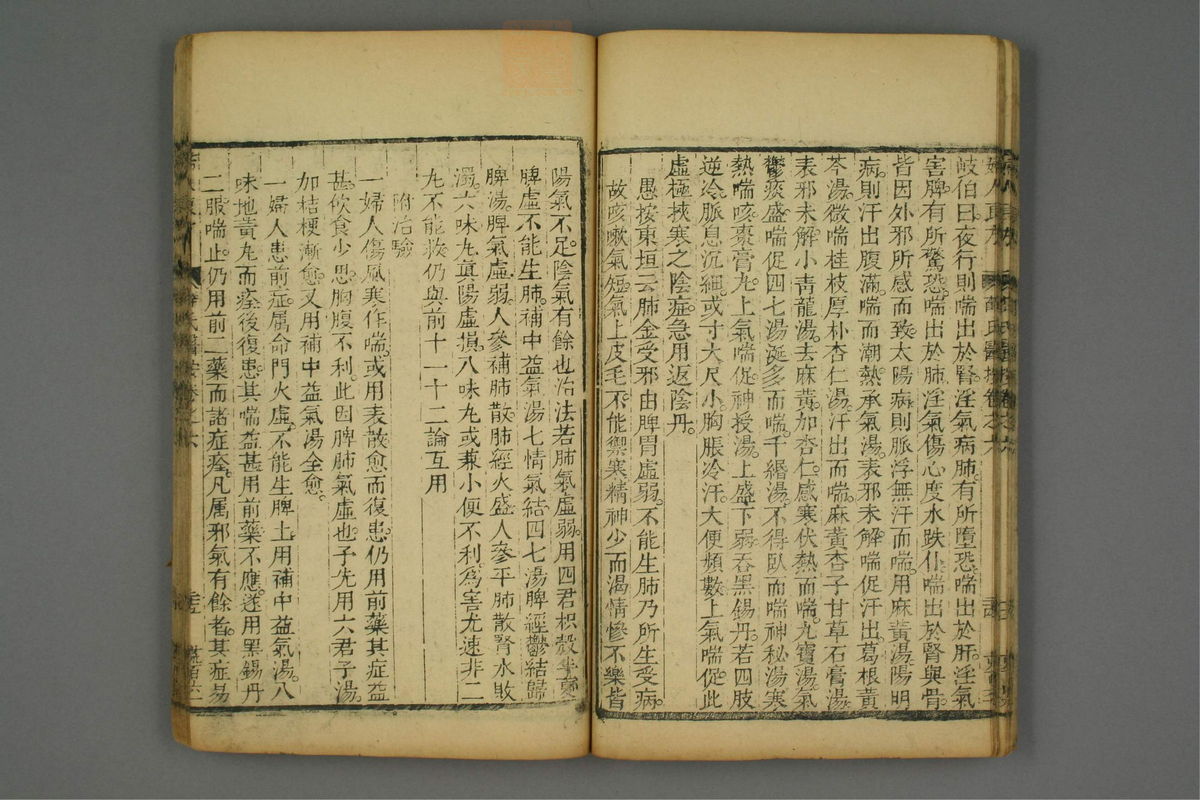 岐伯曰夜行則喘出於腎淫氣病肺有所墮恐喘出於肝淫氣
害脾有所驚恐喘出於肺淫氣傷心度水跌仆喘出於腎與骨
皆因外邪所感而致太陽病則脈浮無汗而喘用麻黃湯陽明
病則汗出腹滿喘而潮熱承氣湯表邪未解喘促汗出葛根黃
芩湯微喘桂枝厚朴杏仁湯汗出而喘麻黃杏子甘草石膏湯
表邪未解小青龍湯去麻黃加杏仁感寒伏熱而喘九寶湯氣
鬱痰盛喘促四七湯涎多而喘千緡湯不得臥而喘神秘湯寒
熱喘咳棗膏丸上氣喘促神授湯上盛下弱吞黑錫丹若四肢
逆冷脈息沉細或寸大尺小胸脹冷汗大便頻數上氣喘促此
虛極挾寒之陰症急用返陰丹
愚按東垣云肺金受邪由脾胃虛弱不能生肺乃所生受病
故咳嗽氣短氣上皮毛不能禦寒精神少而渴情慘不樂皆
陽氣不足陰氣有餘也治法若肺氣虛弱用四君枳殼半夏
脾虛不能生肺補中益氣湯七情氣結四七湯脾經鬱結歸
脾湯脾氣虛弱人參補肺散肺經火盛人參平肺散腎水敗
濁六味丸真陽虛損八味丸或兼小便不利為害尤速非二
丸不能救仍與前十一十二論互用
附治驗
一婦人傷風寒作喘或用表散愈而復患仍用前藥其症益
甚飲食少思胸腹不利此因脾肺氣虛也予先用六君子湯
加桔梗漸愈又用補中益氣湯全愈
一婦人患前症屬命門火虛不能生脾土用補中益氣湯八
味地黃丸而痊後復患其喘益甚用前藥不應遂用黑錫丹
二服喘止仍用前二藥而諸症痊凡屬邪氣有餘者其症易